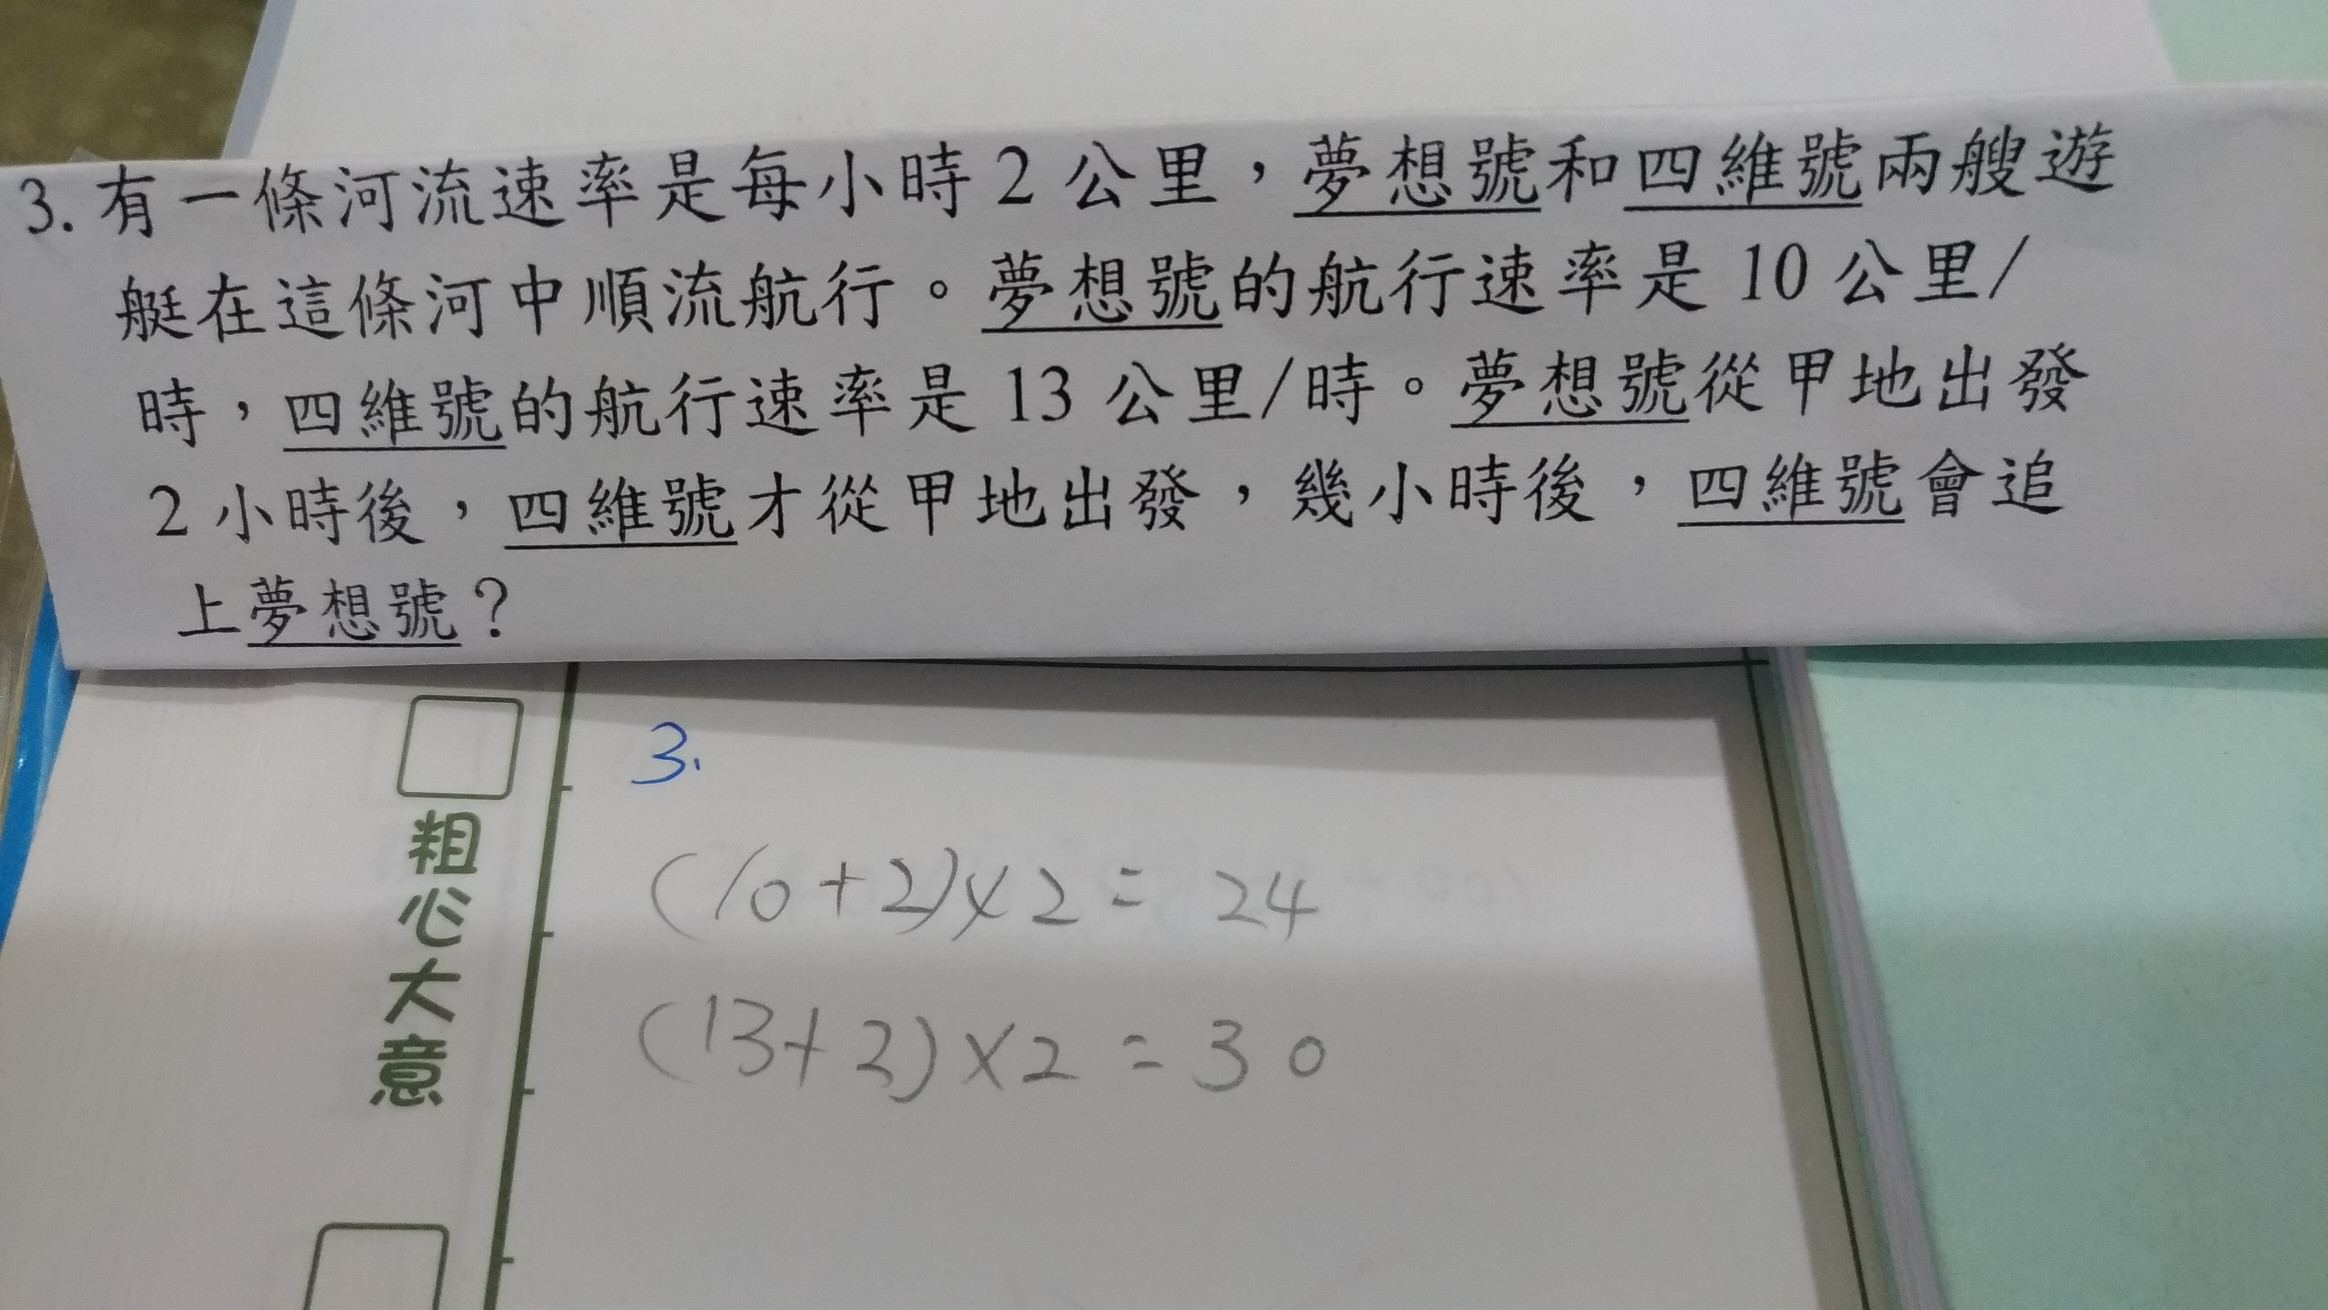 3. 有一條河流速率是每小時 2 公里，夢想號和四維號兩艘遊
艇在這條河中順流航行。夢想號的航行速率是 10 公里/
時，四維號的航行速率是 13 公里/時。夢想號從甲地出發
2 小時後，四維號才從甲地出發，幾小時後，四維號會追
上夢想號？
3.
(10+2)×2=24
(13+2)×2=30
粗心大意